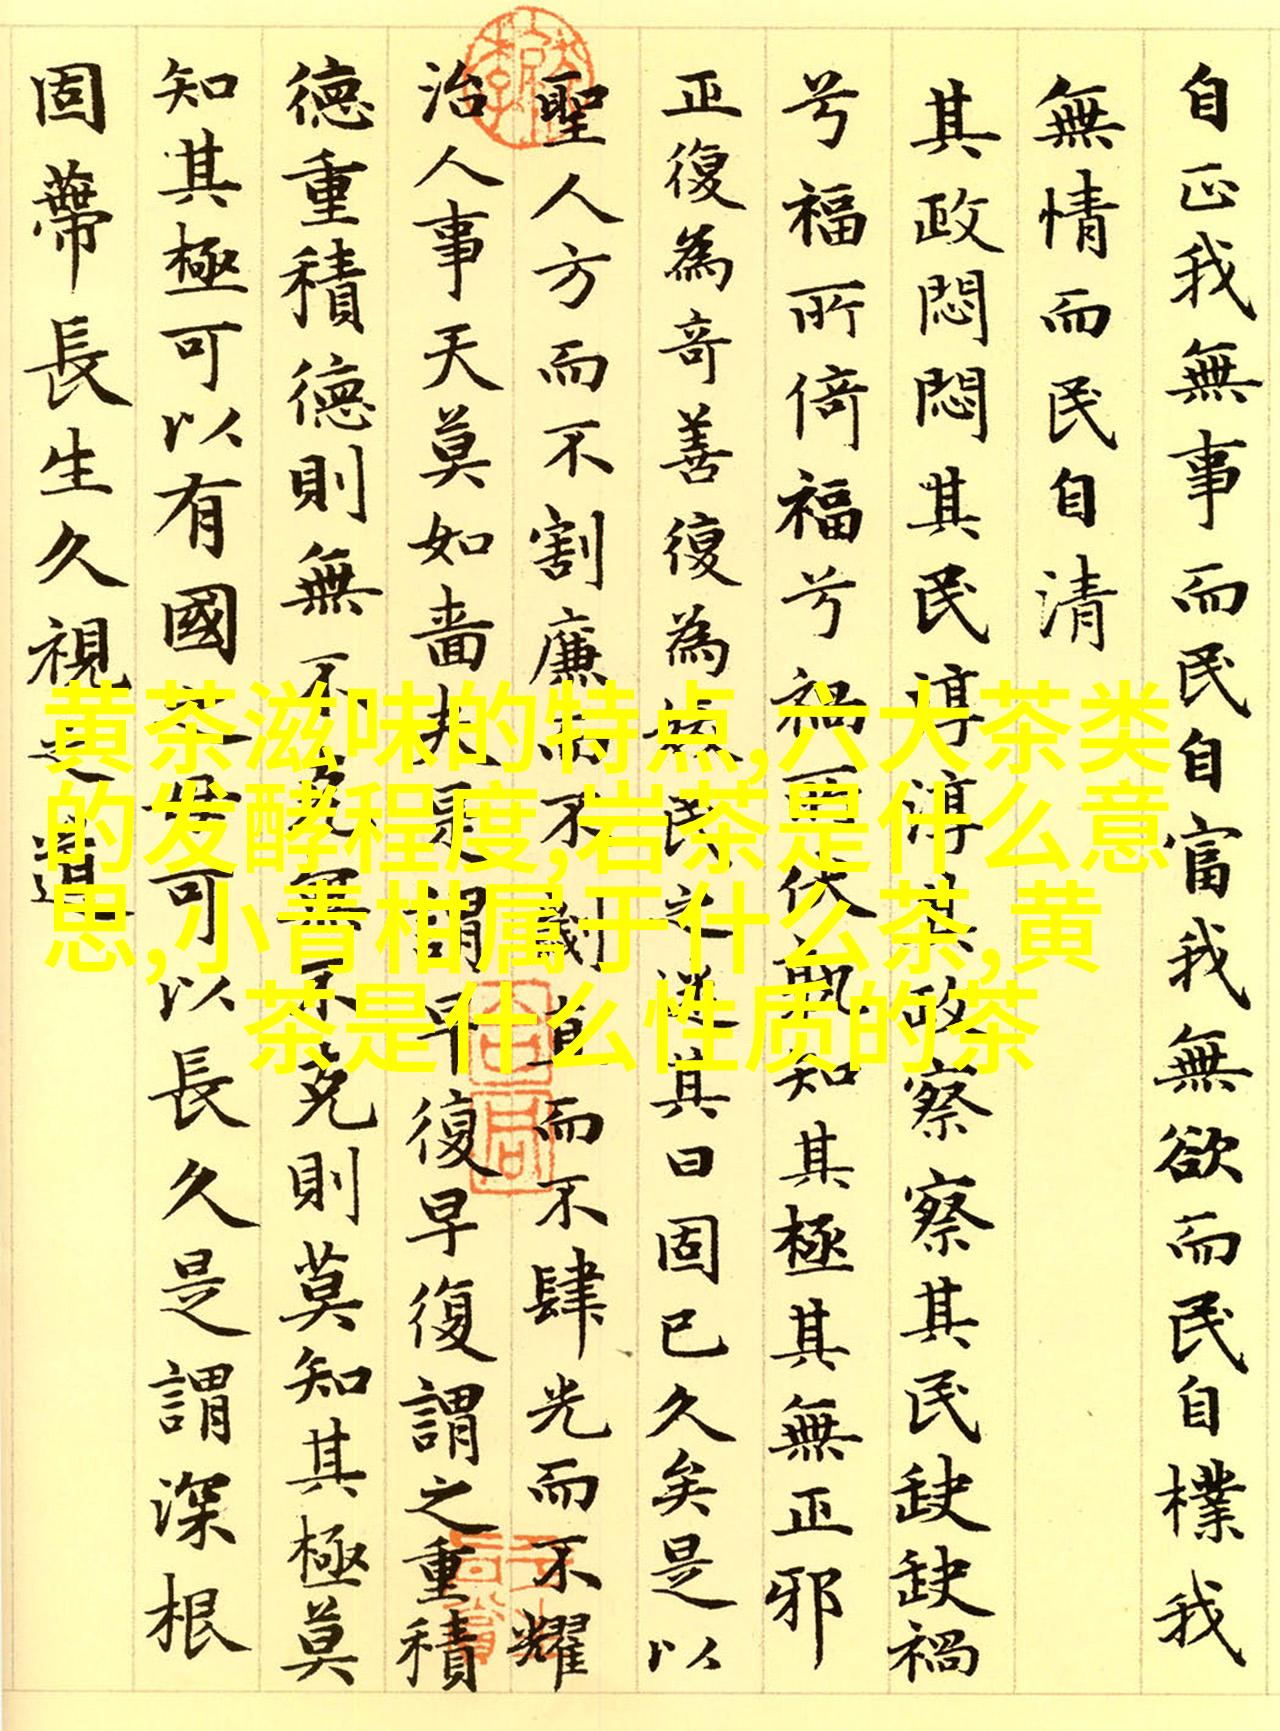 自正我無事而民自富我無欲而民自樸我
無情而民自清
其政悶悶其民淳淳其政察察其民缺缺禍
兮福所倚福兮禍所伏孰知其極其無正邪
正復為奇善復為民之迷其日固已久矣是以
聖人方而不割廉而不劌直而不肆光而不耀
治人事天莫如嗇夫是謂早復早復謂之重積
德重積德則無不克無不克則莫知其極莫
知其極可以有國之母可以長久是謂深根
固蔕長生久視之道
黄茶滋味的特点,六大茶类
的发酵程度,岩茶是什么意
思,小青柑属于什么茶,黄
茶是什么性质的茶